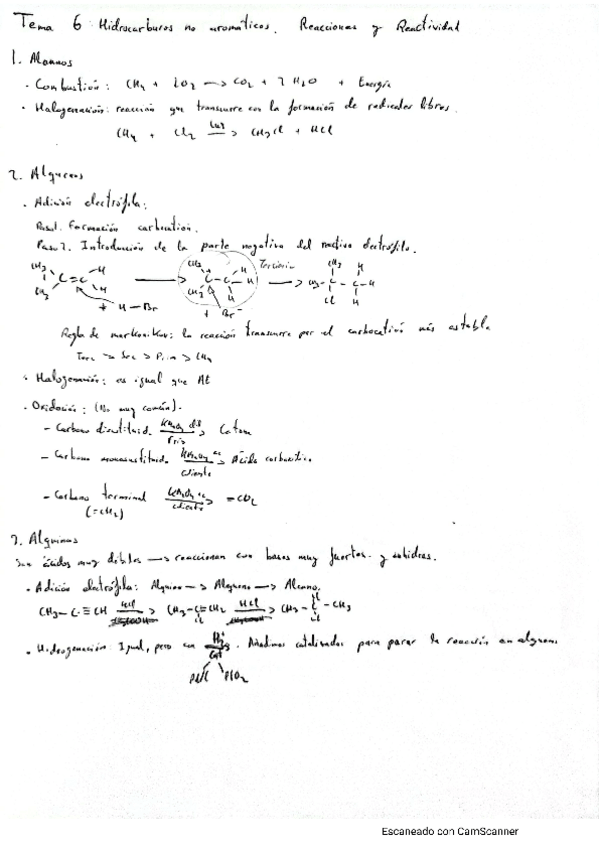 Tema 6: Hidrocarburos no aromáticos. Reacciones y Reactividad
1. Alcanos
· Combustión: CH4 + 2O2 → CO2 + 2 H2O + Energía
· Halogenación: reacción que transcurre con la formación de radicales libres.
CH4 + Cl2 Luz → CH3Cl + HCl
2. Alquenos
· Adición electrófila:
Paso 1. Formación carbocatión.
Paso 2. Introducción de la parte negativa del reactivo electrófilo.
CH3 CH3 C=C H H + H-Br → CH3 CH3 C-C H H H + Br- Terciario → CH3-C-C-H CH3 H H
Regla de markonikov: la reacción transcurre por el carbocatión más estable
Terc > Sec > Prim > CH4
· Halogenación: es igual que
· Oxidación: (No muy común).
- Carbono disustituid. KMnO4 Frío →
- Carbono monosustituido KMnO4 ac caliente → Ácido carboxílico
- Carbono terminal KMnO4 ac caliente → CO2
(=CH2)
3. Alquinos
Son ácidos muy débiles → reaccionan con bases muy fuertes. y
· Adición electrófila: Alquino → Alqueno → Alcano.
CH3-C≡CH HCl → CH3-C=CH2 HCl → CH3-C-CH3
· Hidrogenación Igual, pero con H2 Cat. Añadimos catalizador para parar la reacción en alqueno
Escaneado con CamScanner